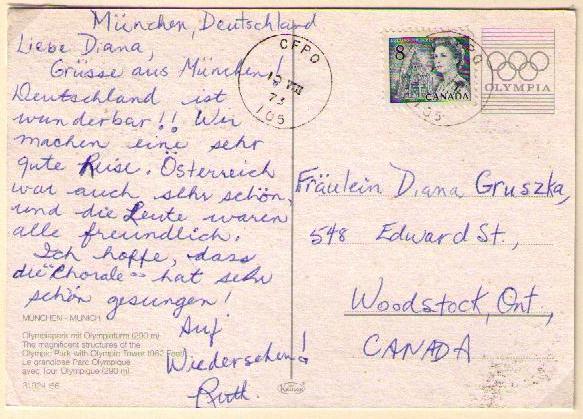 München, Deutschland
Liebe Diana,
Grüsse aus München!
Deutschland ist
wunderbar!! Wir
machen eine sehr
gute Reise. Österreich
war auch sehr schön,
und die Leute waren
alle freundlich.
Ich hoffe, dass
die "Chorale" hat sehr
schön gesungen!
Auf
Wiedersehen!
Ruth.
MÜNCHEN - MUNICH
Olympiapark mit Olympiaturm (290 m)
The magnificent structures of the
Olympic Park with Olympic Tower (962 Feet)
Le grandiose Parc Olympique
avec Tour Olympique (290 m)
CFPO
VIII
73
105
8
CANADA
CFPO
105
OLYMPIA
Fräulein Diana Gruszka,
548 Edward St.,
Woodstock, Ont.,
CANADA
Krüger